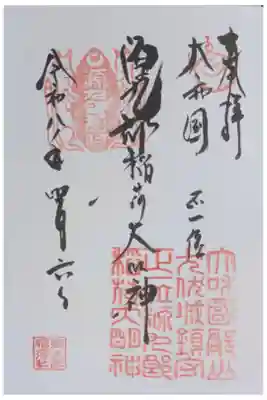 奉拝
大和国
正一位
源九郎稲荷大明神
令和八年四月六日
大和國郡山
城鎮守
正一位源九郎
稲荷大明神